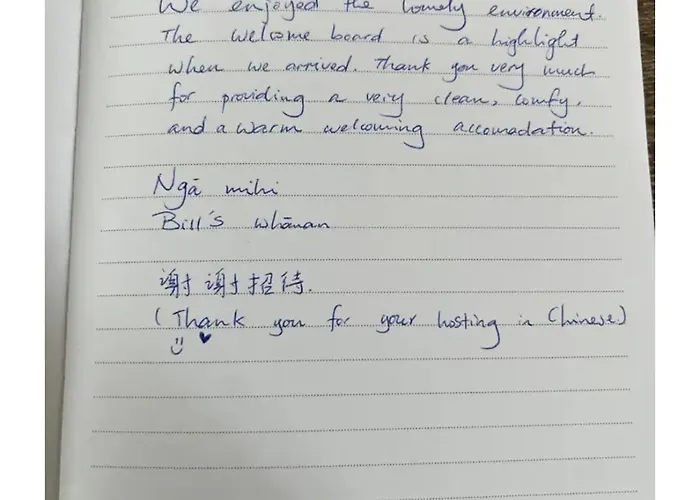 We enjoyed the lovely environment.
The welcome board is a highlight
when we arrived. Thank you very much
for providing a very clean, comfy,
and a warm welcoming accomadation.
Ngā mihi
Bill's whānan
谢谢招待.
(Thank you for your hosting in Chinese)